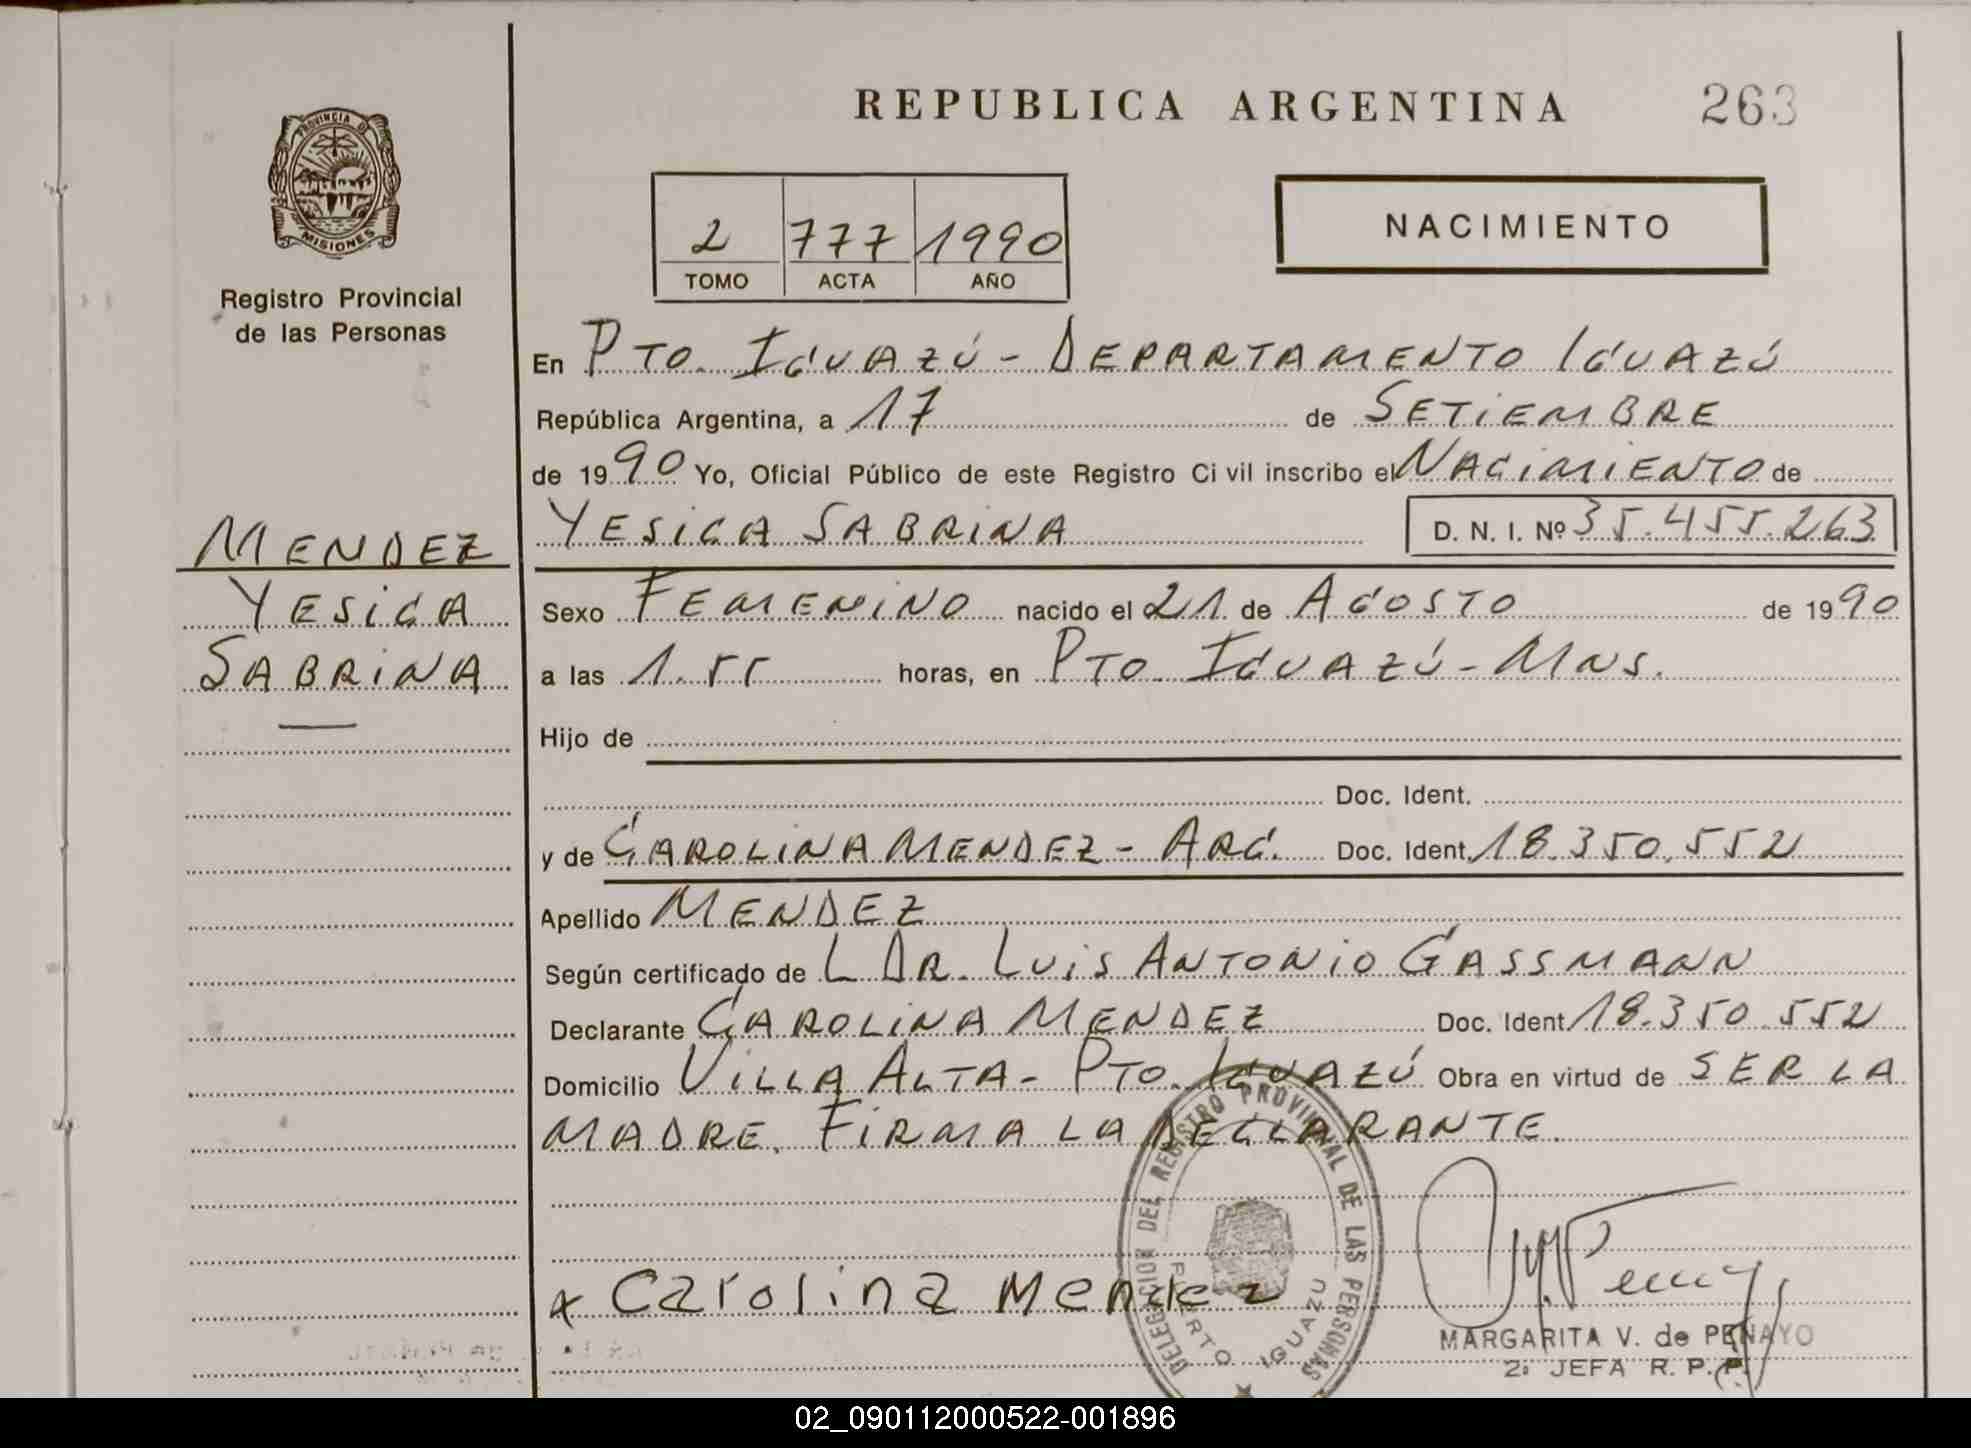 REPUBLICA ARGENTINA 263
PROVINCIA DE
MISIONES
Registro Provincial
de las Personas
2 777 1990
TOMO ACTA AÑO
NACIMIENTO
En PTO. IGUAZÚ - DEPARTAMENTO IGUAZÚ
República Argentina, a 17 de SETIEMBRE
de 1990 Yo, Oficial Público de este Registro Civil inscribo el NACIMIENTO de
YESICA SABRINA D. N. I. Nº 35.455.263
MENDEZ
YESICA
SABRINA
Sexo FEMENINO nacido el 21 de AGOSTO de 1990
a las 1.55 horas, en PTO. IGUAZÚ - MNS.
Hijo de
Doc. Ident.
y de CAROLINA MENDEZ - ARG. Doc. Ident. 18.350.552
Apellido MENDEZ
Según certificado de L DR. LUIS ANTONIO GASSMANN
Declarante CAROLINA MENDEZ Doc. Ident 18.350.552
Domicilio VILLA ALTA - PTO. IGUAZÚ Obra en virtud de SER LA
MADRE. FIRMA LA DECLARANTE.
DELEGACION DEL REGISTRO PROVINCIAL DE LAS PERSONAS
PUERTO IGUAZU
x Carolina Mendez
MARGARITA V. de PENAYO
2ª JEFA R. P. P.
02_090112000522-001896